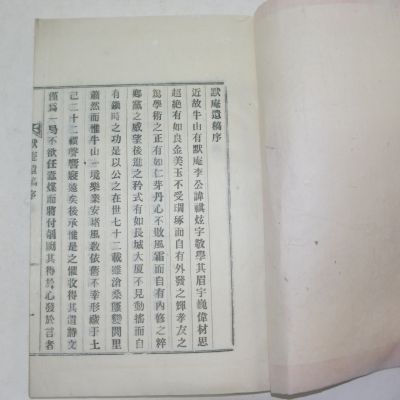 默庵遺稿序
近故牛山有默庵李公諱祺炫字敬學其眉宇魏偉材思
超絶有如良金美玉不受琱琢而自有外發之輝孝友之
篤學術之正有如仁芽丹心不敗風霜而自有內修之粹
鄕黨之感望後進之矜式有如長城大厦不見動搖而自
有鎭時之功是以公之在世七十二載雖滄桑陸變閭里
蕭然而惟牛山一境樂業安堵風敎依舊不幸形藏于土
已三十二禩警謦寢遠矣後承惟是之懼收得其遺詩文
僅爲一局不欲任蠹煤而將付剞劂其得於心發於言者
默庵遺稿序